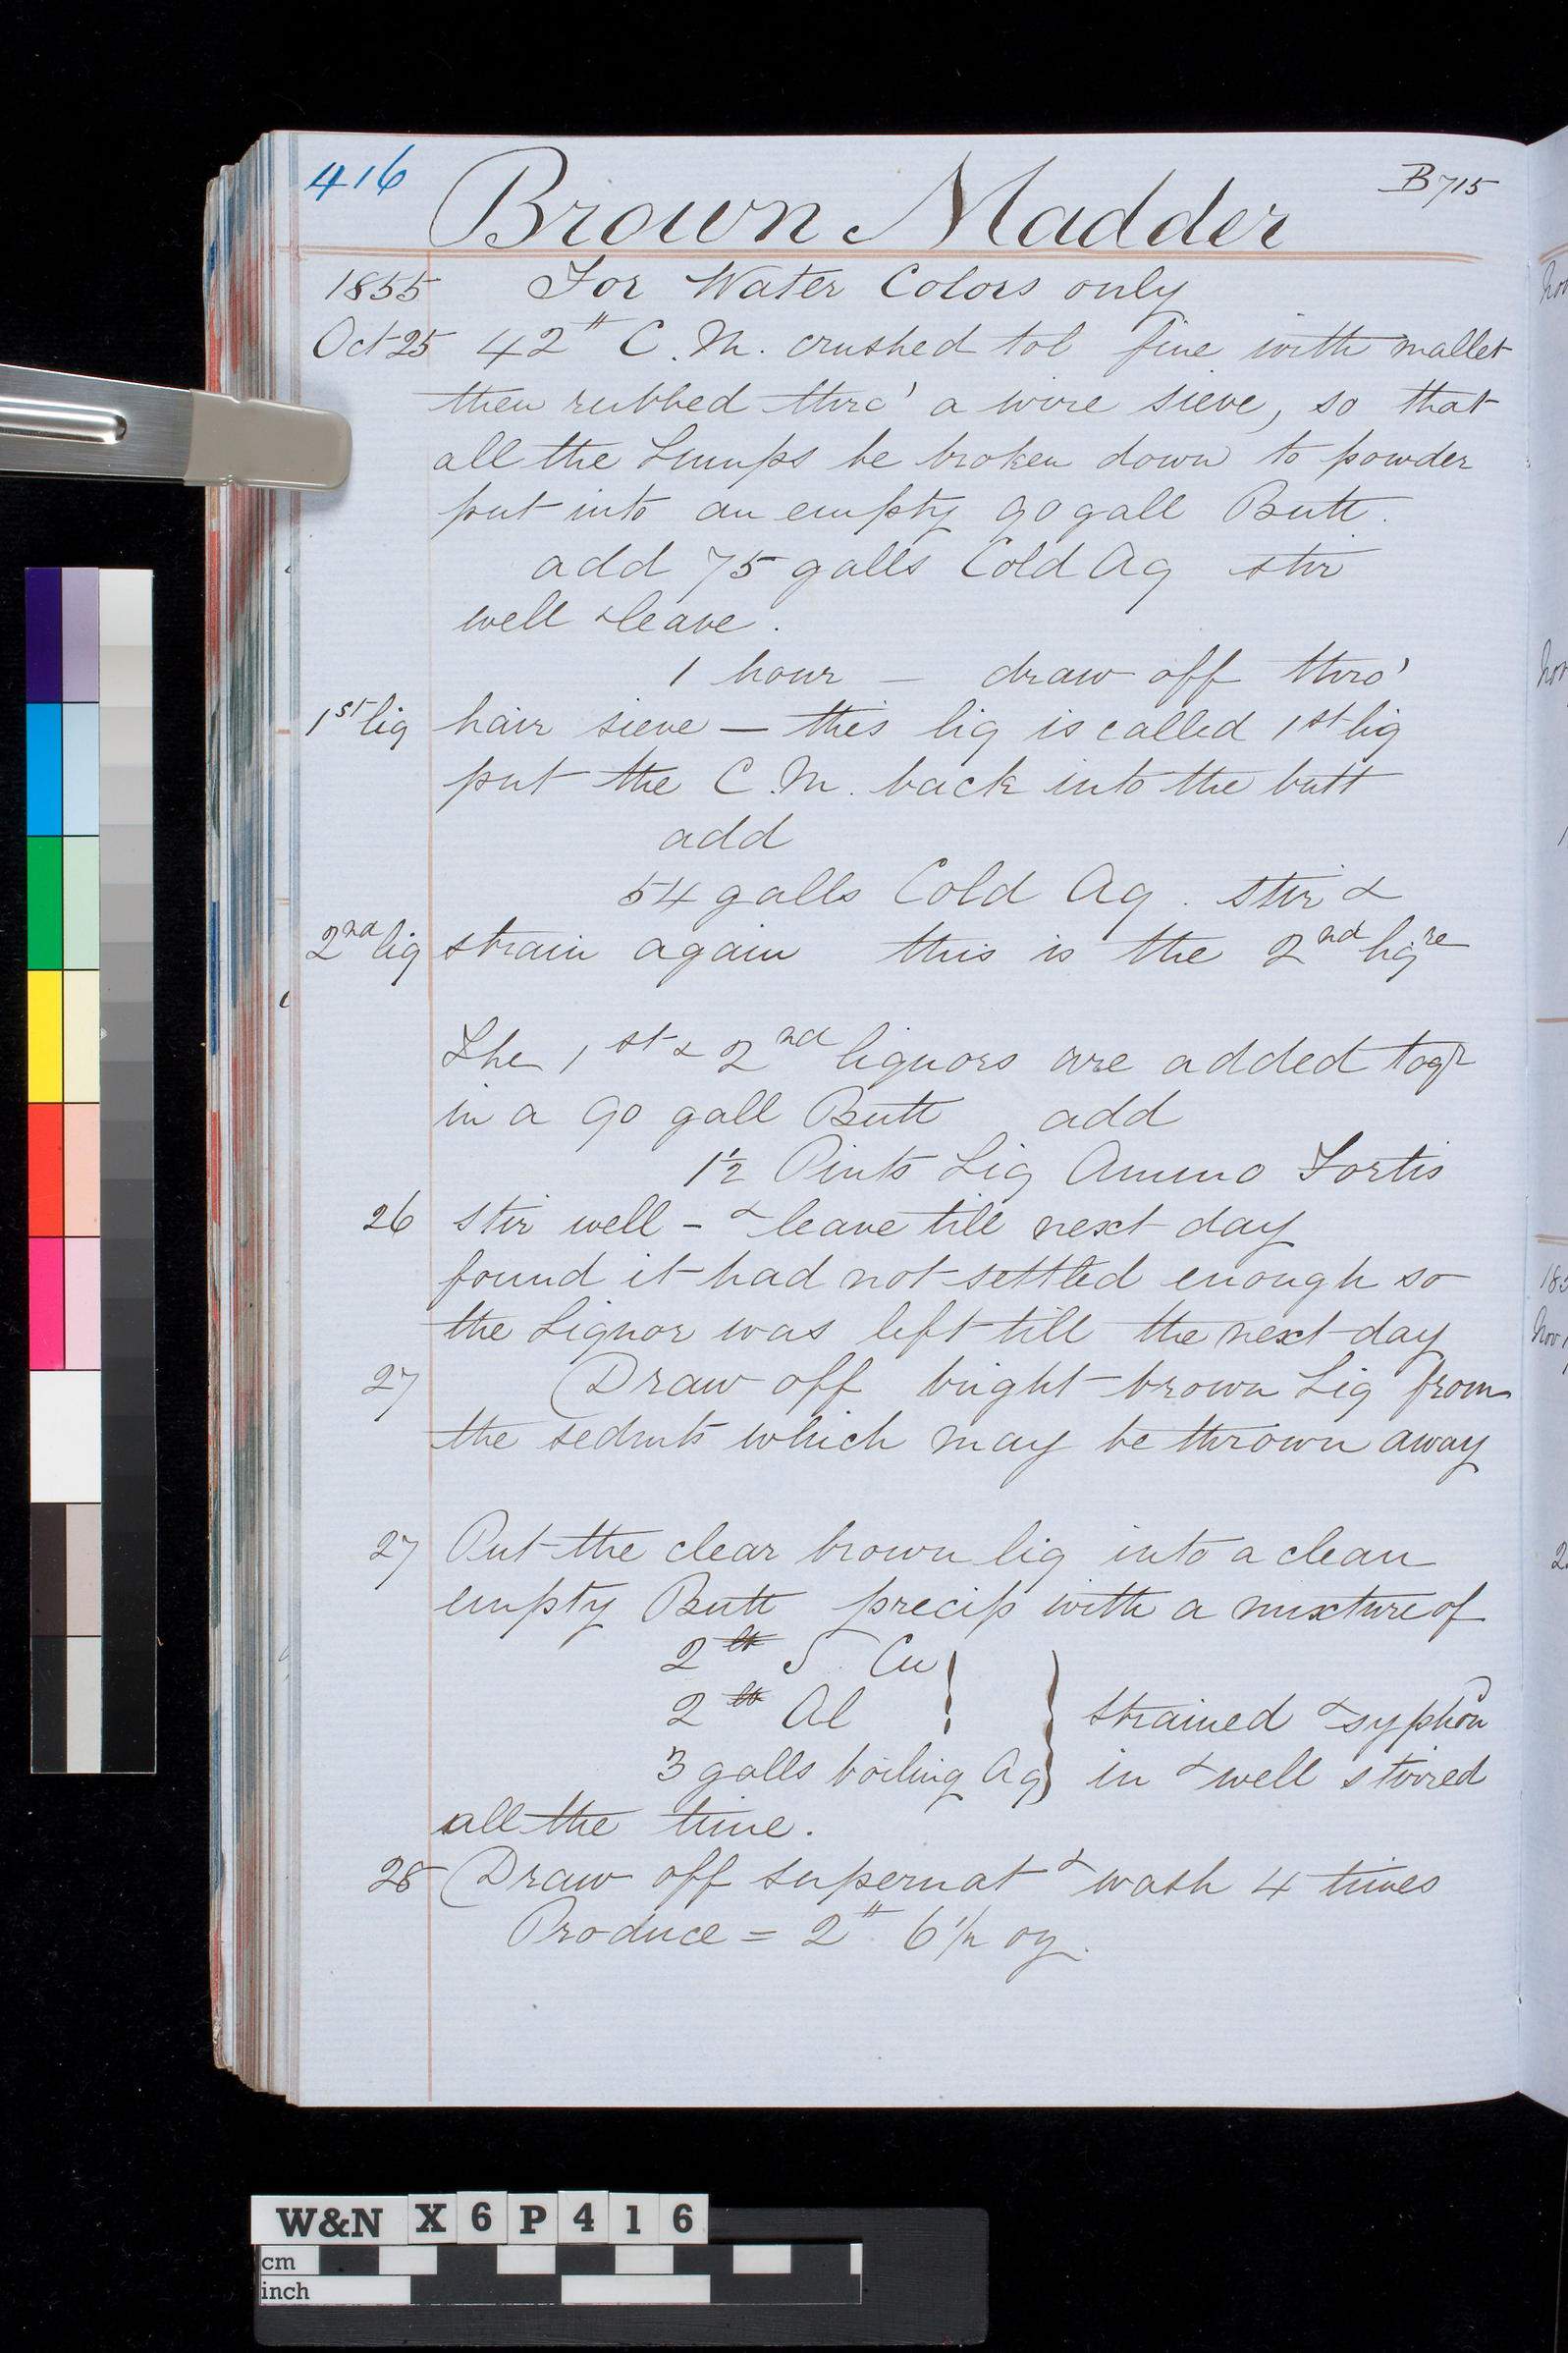 416
B715
Brown Madder
1855 For Water Colors only
Oct 25 42 # C.M. crushed tol fine with mallet
then rubbed thro' a wire sieve, so that
all the Lumps be broken down to powder
put into an empty 90 gall Butt.
add 75 galls Cold Aq stir
well & leave.
1 hour — draw off thro'
1st liq hair sieve — this liq is called 1st liq
put the C.M. back into the butt
add
54 galls Cold Aq. stir &
2nd liq strain again this is the 2nd liqre
The 1st & 2nd liquors are added togr
in a 90 gall Butt add
1½ Pints Liq Ammo Fortis
26 stir well - & leave till next day
found it had not settled enough so
the Liquor was left till the next day
27 Draw off bright brown Liq from
the sedmts which may be thrown away
27 Put the clear brown liq into a clean
empty Butt precip with a mixture of
2 lb S. Cu
2 lb Al } strained & syphond
3 galls boiling Aq } in & well stirred
all the time.
28 Draw off supernat & wash 4 times
Produce = 2 # 6 1/2 oz.
Nov
Nov
Nov
W&N X6P416
cm
inch